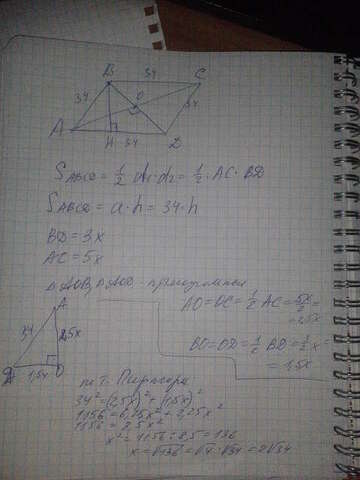 B 34 C
34 O 34
A H 34 D
S ABCD = 1/2 d₁·d₂ = 1/2 · AC · BD
S ABCD = a·h = 34·h
BD = 3x
AC = 5x
AO = OC = 1/2 AC = 5x/2 =
= 2,5x
BO = OD = 1/2 BD = 1/2 · 3x =
= 1,5x
A
34 2,5x
1,5x O
по т. Пифагора
34² = (2,5x)² + (1,5x)²
1156 = 6,25x² + 2,25x²
1156 = 8,5x²
x² = 1156 : 8,5 = 136
x = √136 = √4 · √34 = 2√34